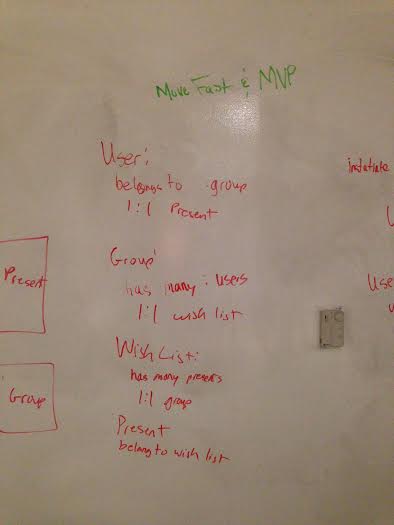 Move Fast & MVP
User:
belongs to group
1:1 Present
Group:
has many : users
1:1 wish list
Wish List:
has many presents
1:1 group
Present
belong to wish list
Present
Group
instatiate
Use